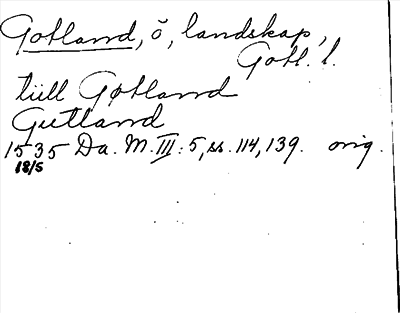 Gotland, ö, landskap,
Gotl. l.
tiill Gøtland
Gutland
1535 Da. M. III: 5, ss. 114, 139. orig.
18/5